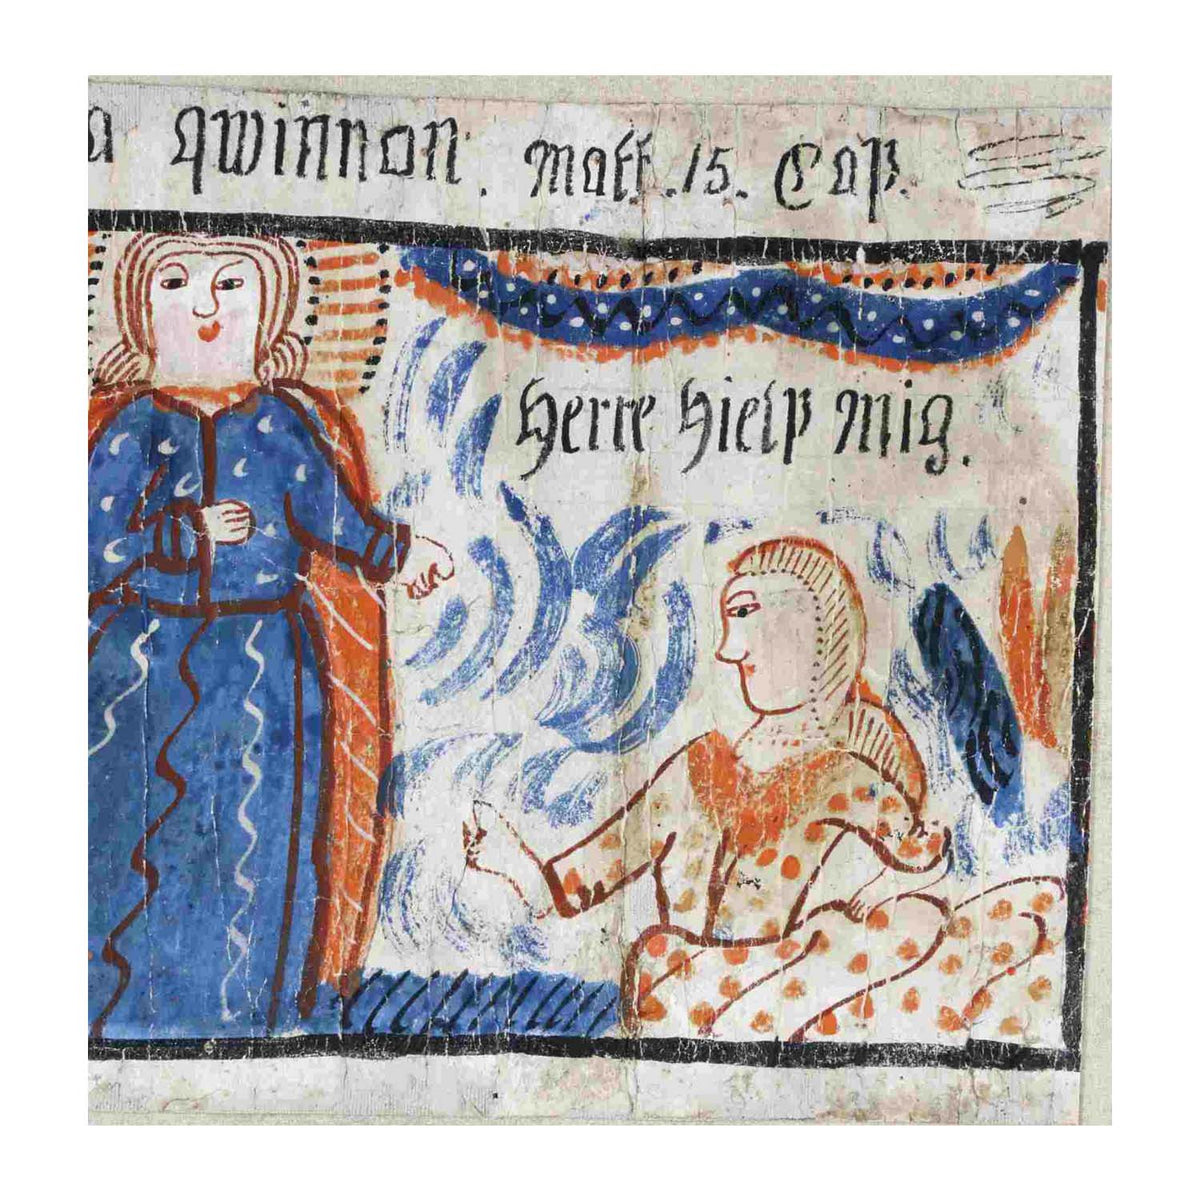 a qwinnon. Matt. 15. Cap.
Herre hielp Mig.